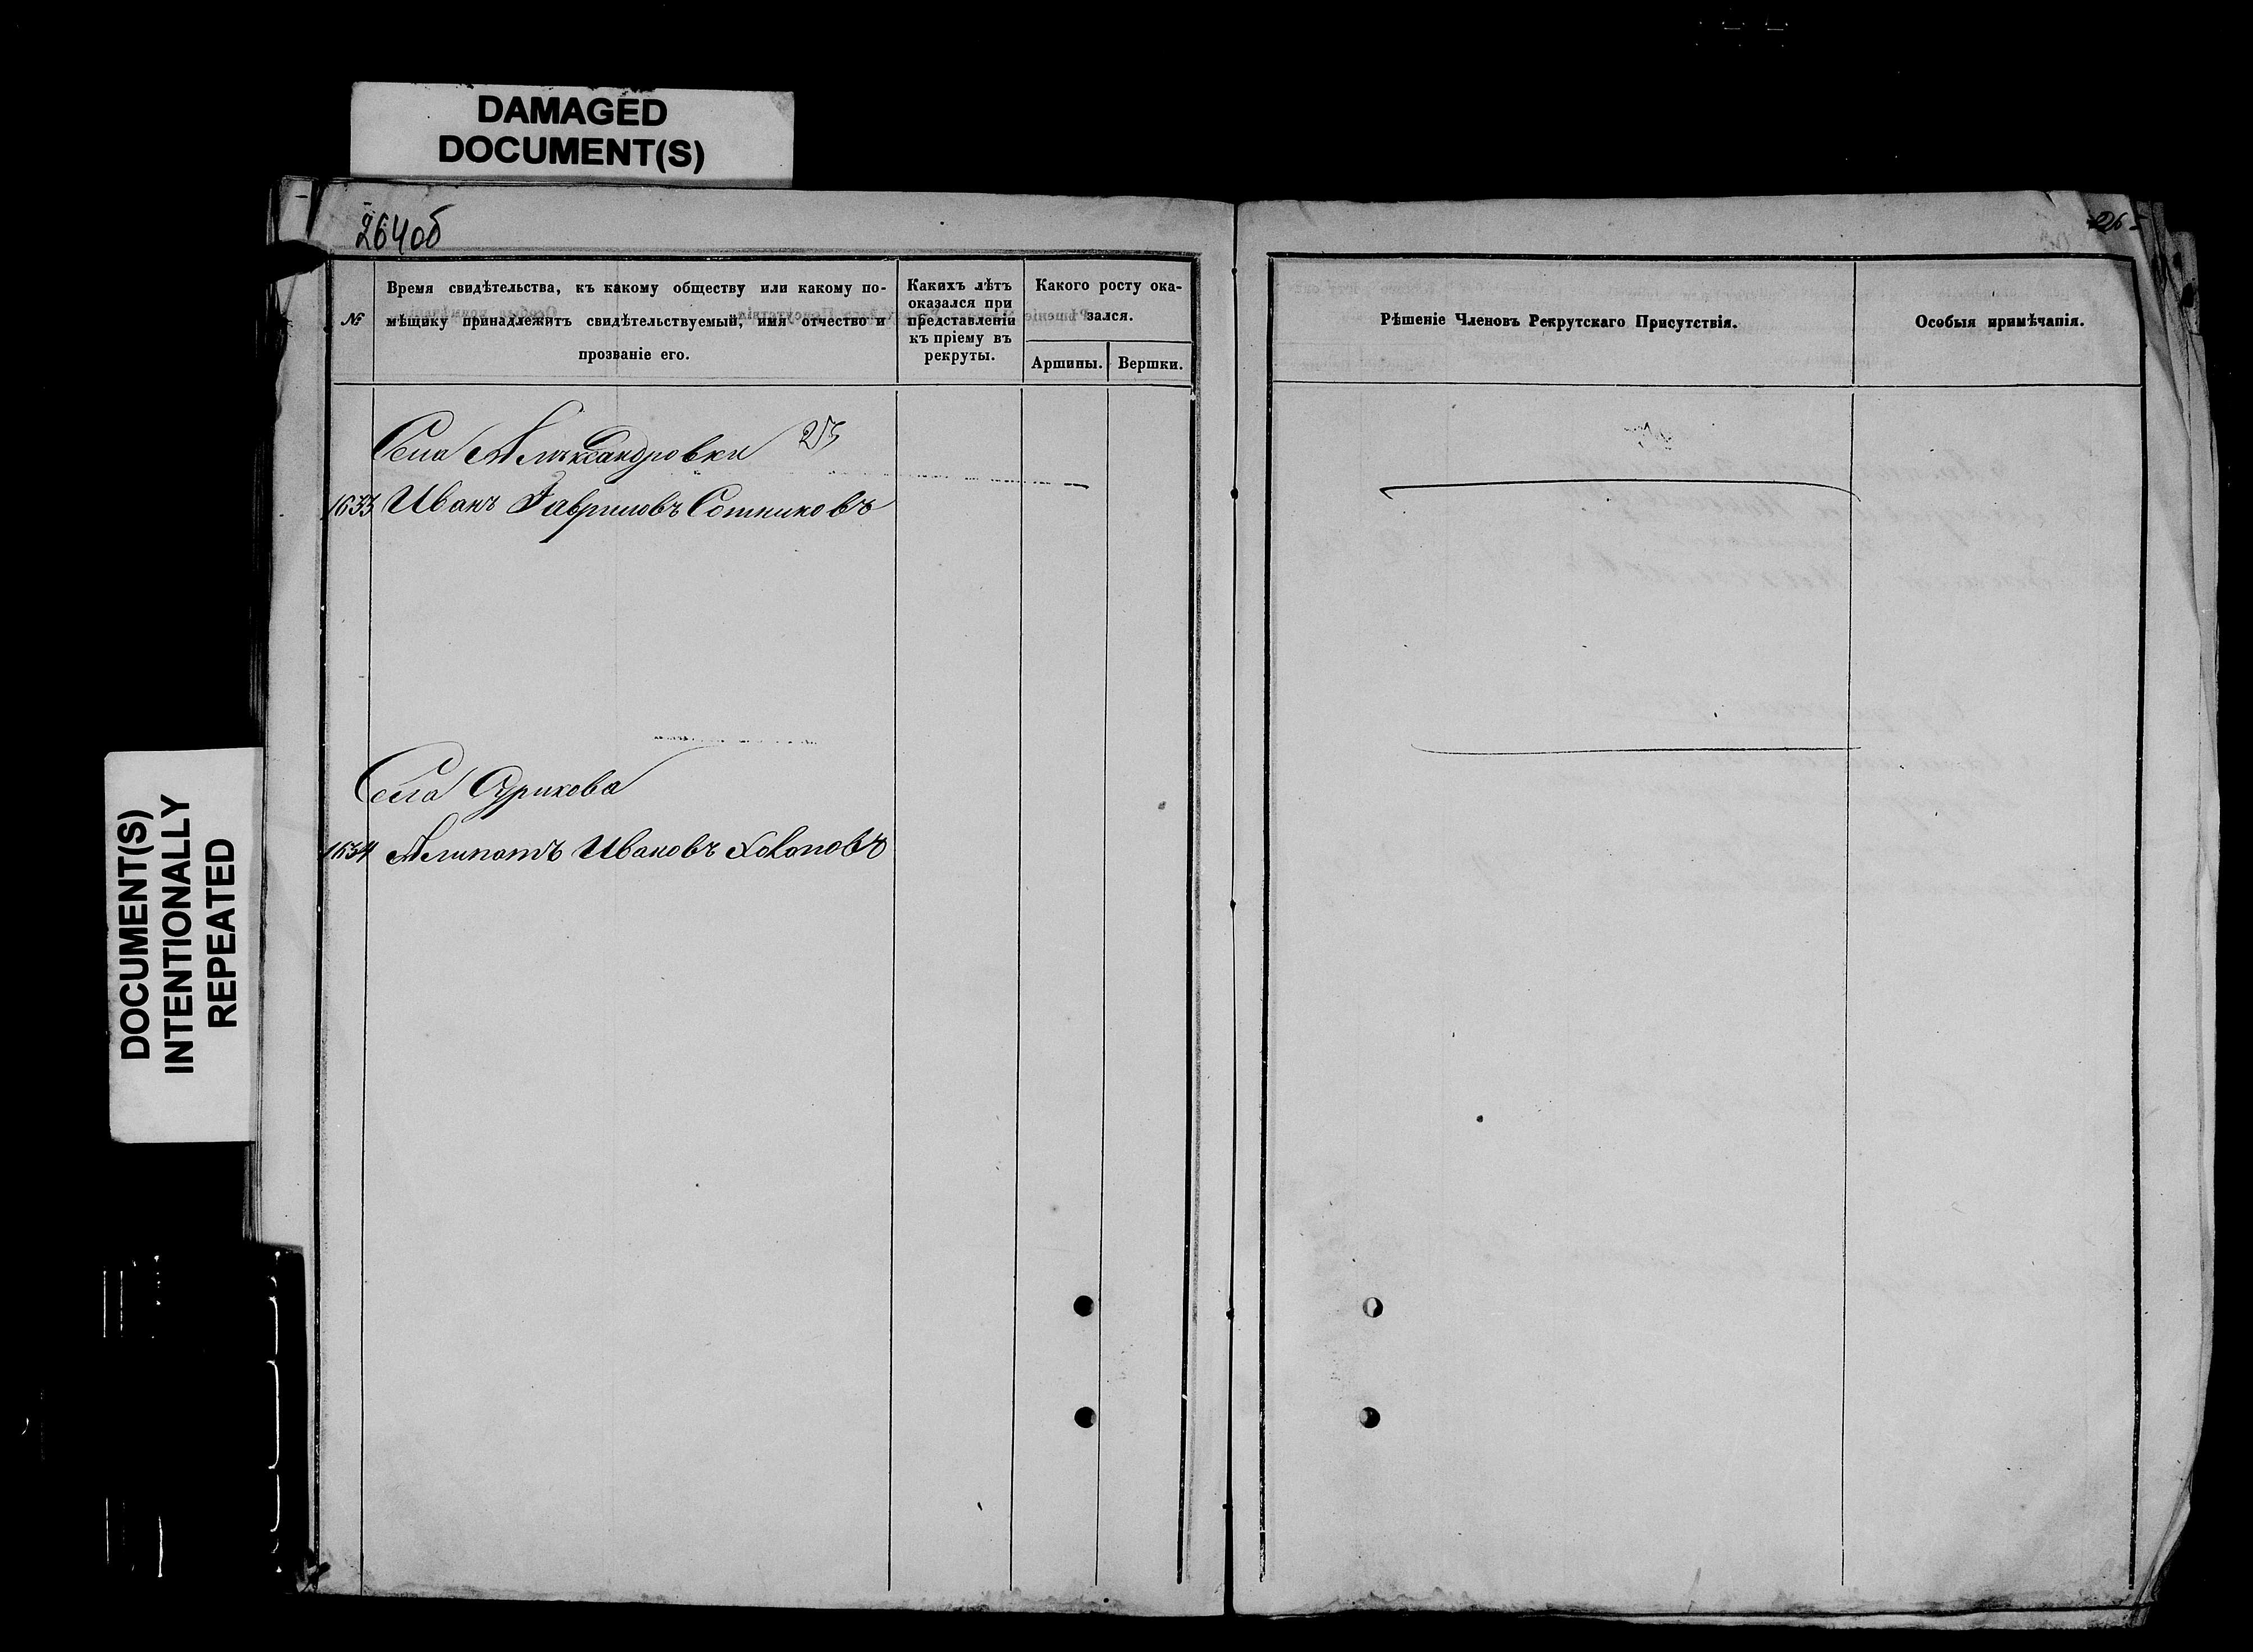 DAMAGED
DOCUMENT(S)
DOCUMENT(S)
INTENTIONALLY
REPEATED
264об
№
Время свидѣтельства, къ какому обществу или какому по-
мѣщику принадлежитъ свидѣтельствуемый, имя отчество и
прозваніе его.
Какихъ лѣтъ
оказался при
представленіи
къ пріему въ
рекруты.
Какого росту ока-
зался.
Аршины.
Вершки.
Рѣшеніе Членовъ Рекрутскаго Присутствія.
Особыя примѣчанія.
Села Алѣксандровки
1633 Иванъ Гавриловъ Сотниковъ
Села Сурикова
1634 Ивановъ